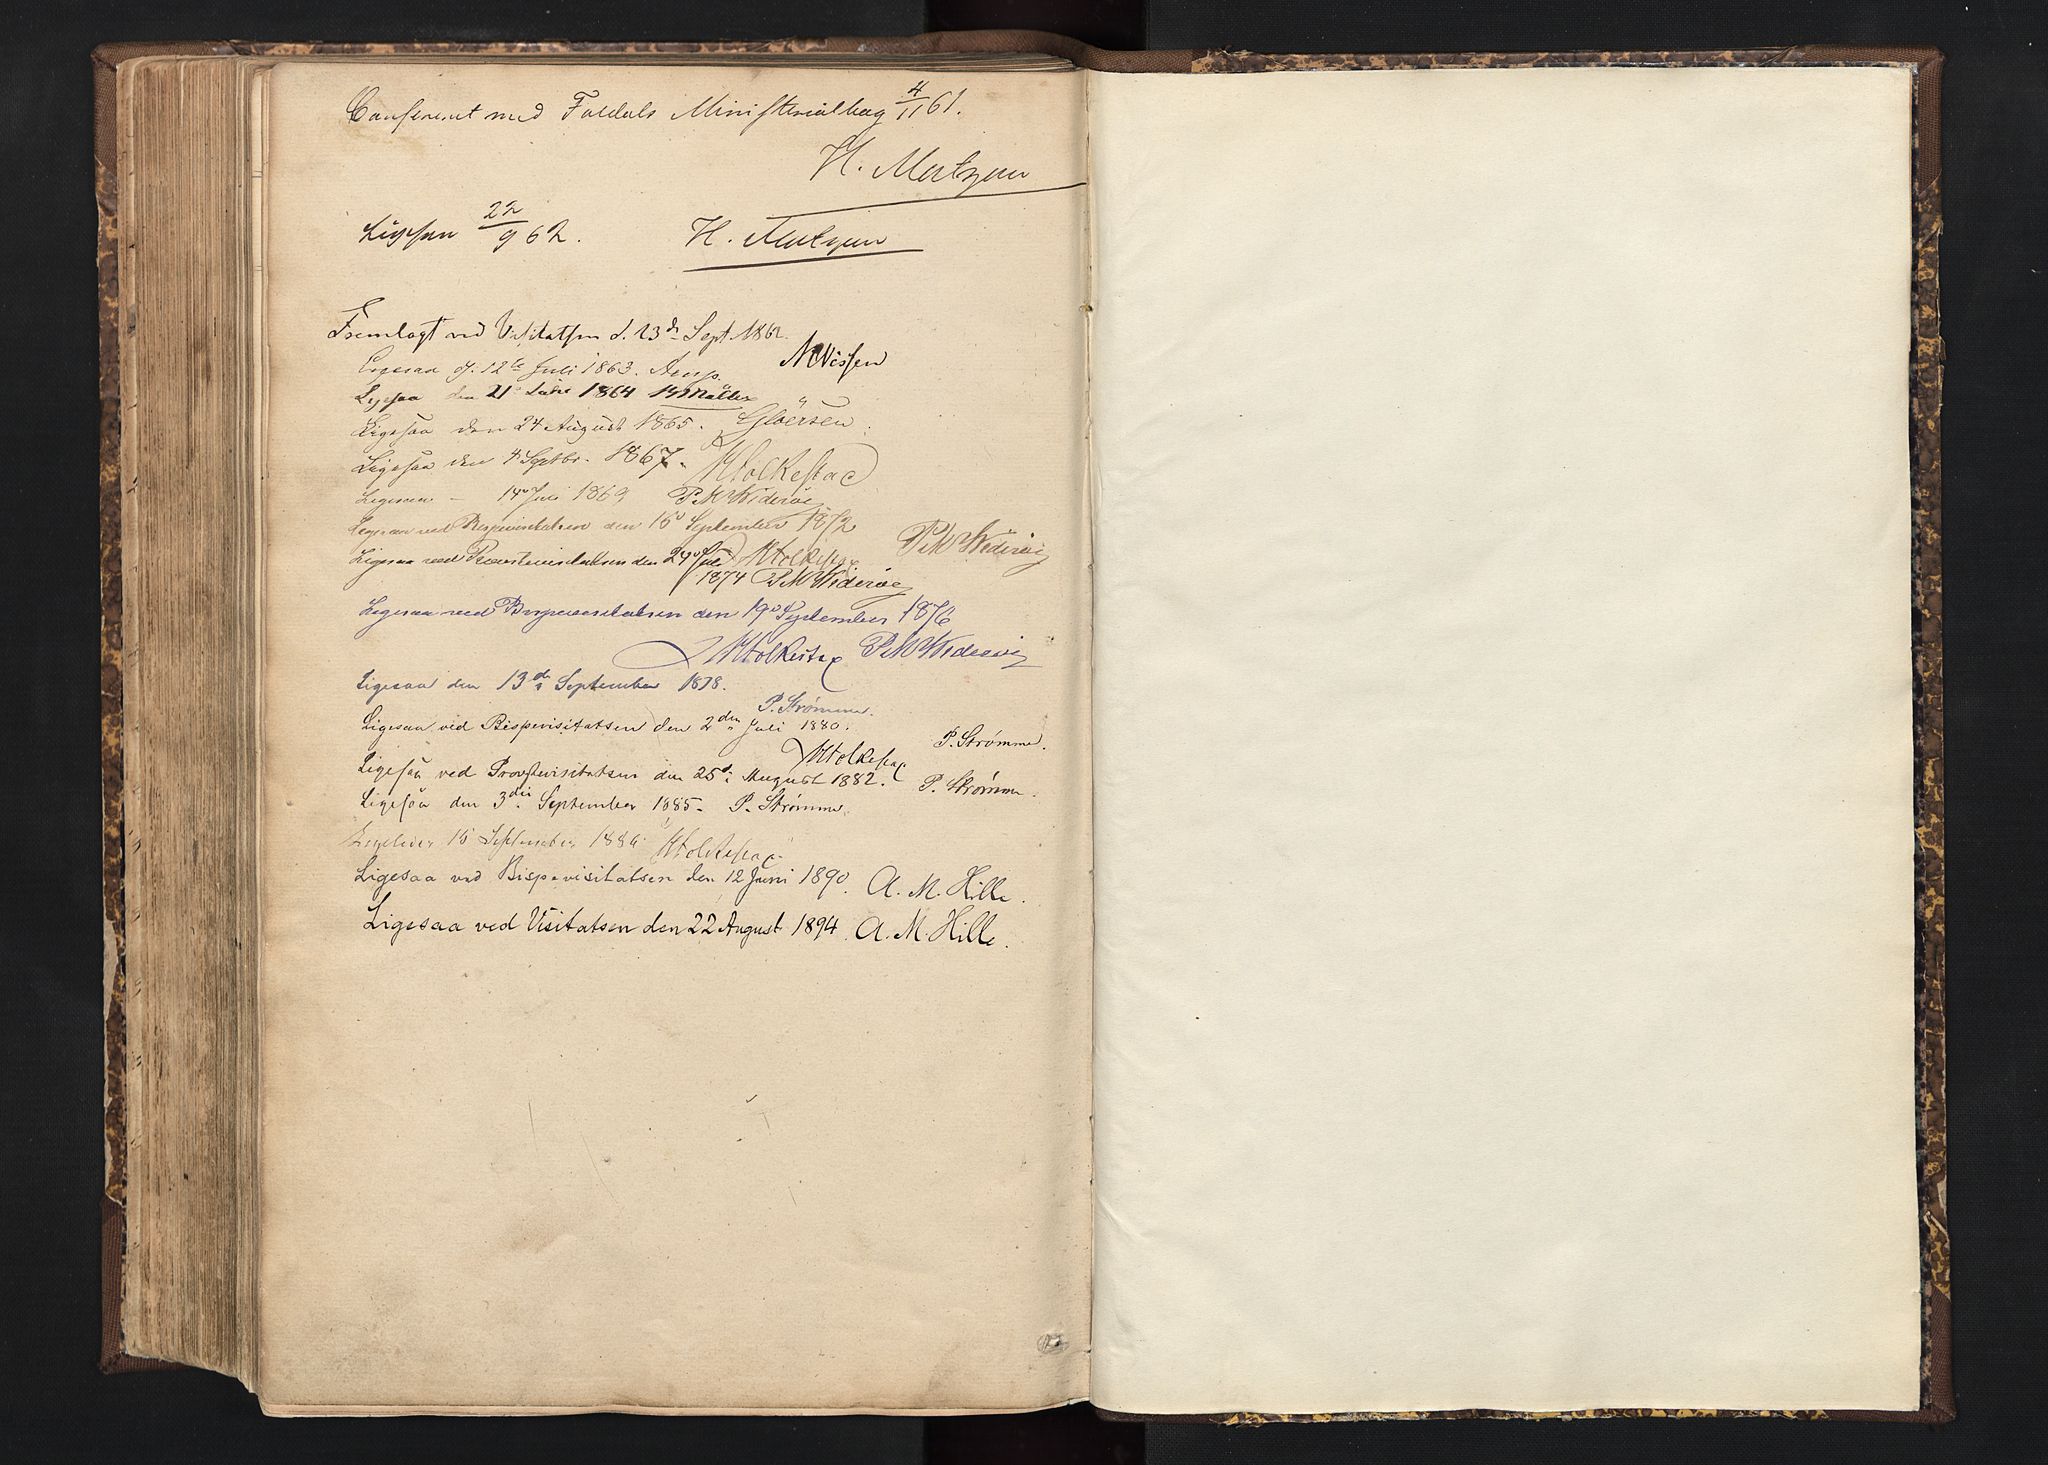 Confereret med Foldals Ministerialbog 4/11 61.
H. Matzau
Ligesaa 22/9 62. H. Matzau
Fremlagt ved Visitatsen d. 23de Sept. 1862.
N Nissen
Ligesaa d. 12te Juli 1863.
Ligesaa den 21de Juni 1864 Müller
Ligesaa den 24 August 1865. Gløersen.
Ligesaa den 4 Septbr. 1867. H Folkestad
Ligesaa - 14de Juli 1869 P M Widerøe
Ligesaa ved Bispevisitatsen den 16de September 1872 P M Widerøe
H Folkestad
Ligesaa ved Provstevisitatsen den 24de Juli 1874 P M Widerøe
Ligesaa ved Bispevisitatsen den 19de September 1876
H Folkestad P M Widerøe
Ligesaa den 13de September 1878.
P. Strømme.
Ligesaa ved Bispevisitatsen den 2den Juli 1880.
H Folkestad P. Strømme.
Ligesaa ved Provstevisitatsen den 25de August 1882. P. Strømme.
Ligesaa den 3die September 1885. P. Strømme.
Ligeledes 16 September 1886 H Folkestad
Ligesaa ved Bispevisitatsen den 12 Juni 1890. A. M. Hille.
Ligesaa ved Visitatsen den 22 August 1894. A. M. Hille.